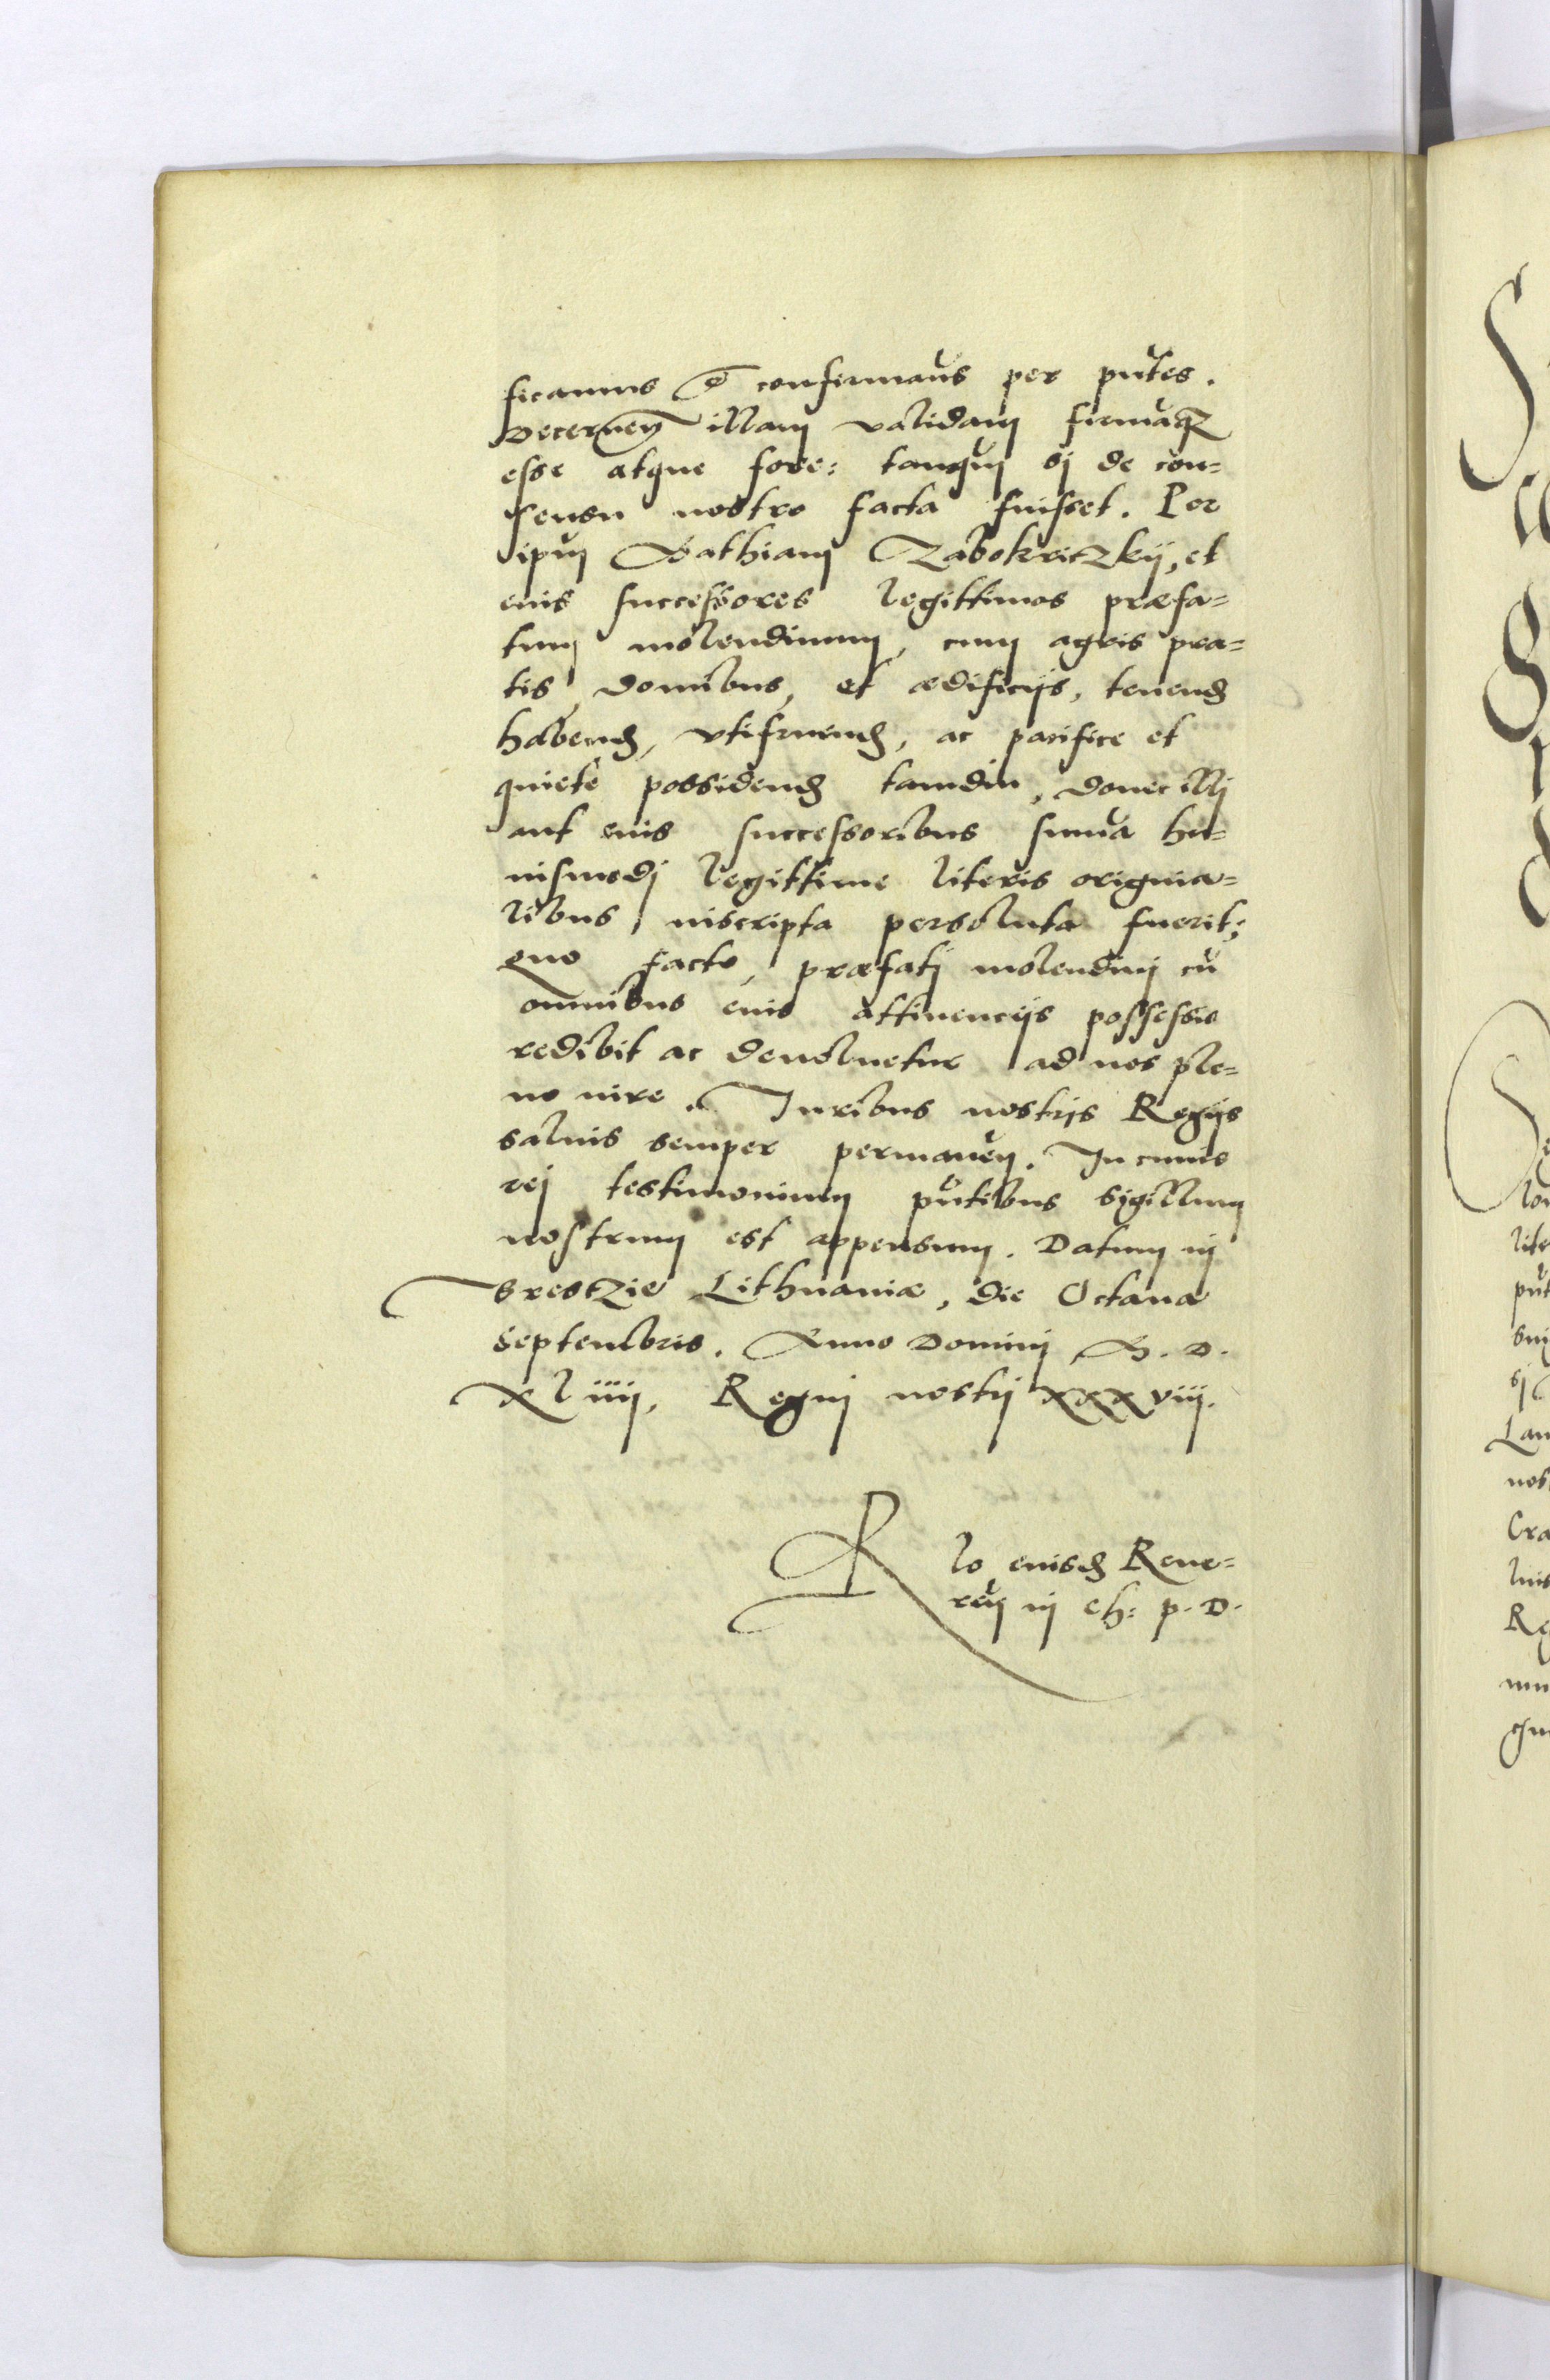 ficamus et confirmaūs per pn̄tes.
Decernen̄ illam validam firmāq3
esse atque fore: tanqūm si de con=
sensu nostro facta fuisset. Per
ip̄um Mathiam Zabokriczkij, et
eius successores legittimos præfa=
tum molendinum, cum agris pra=
tis, domibus, et ædificijs, tenend
habend, vtifruend, ac pacifice et
quiete possidend tamdiu, donec illi
aut eius successoribus summa hu=
iusmodj legittime literis origina=
libus inscripta persoluta fuerit;
quo facto, præfatj molendinj cū
omnibus eius attinencijs possessio
redibit ac deuoluetur ad nos ple=
no iure. Juribus nostris Regijs
saluis semper permanen̄. In cuius
rej testimonium pn̄tibus sigillum
nostrum est appensum. Datum in
Brestzie Lithuaniæ, die Octaua
Septembris. Anno Domini M. D.
xliiij. Regnj nostrj xxxviij.
R lo eiusd Reue=
ren̄ in ch: p. D.